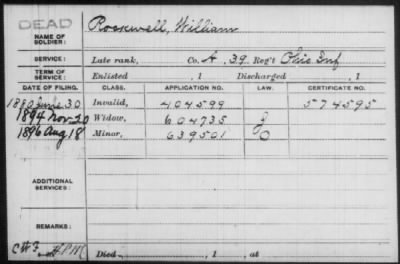 DEAD
NAME OF SOLDIER: Rosswell, William
SERVICE: Late rank, Co. A, 39 Reg't Ohio Inf
TERM OF SERVICE: Enlisted , 1 Discharged , 1
DATE OF FILING. CLASS. APPLICATION NO. LAW. CERTIFICATE NO.
1880 June 30 Invalid, 404599 574595
1894 Nov 20 Widow, 604735
1896 Aug 18 Minor, 639501
ADDITIONAL SERVICES:
REMARKS:
Died , 1 , at